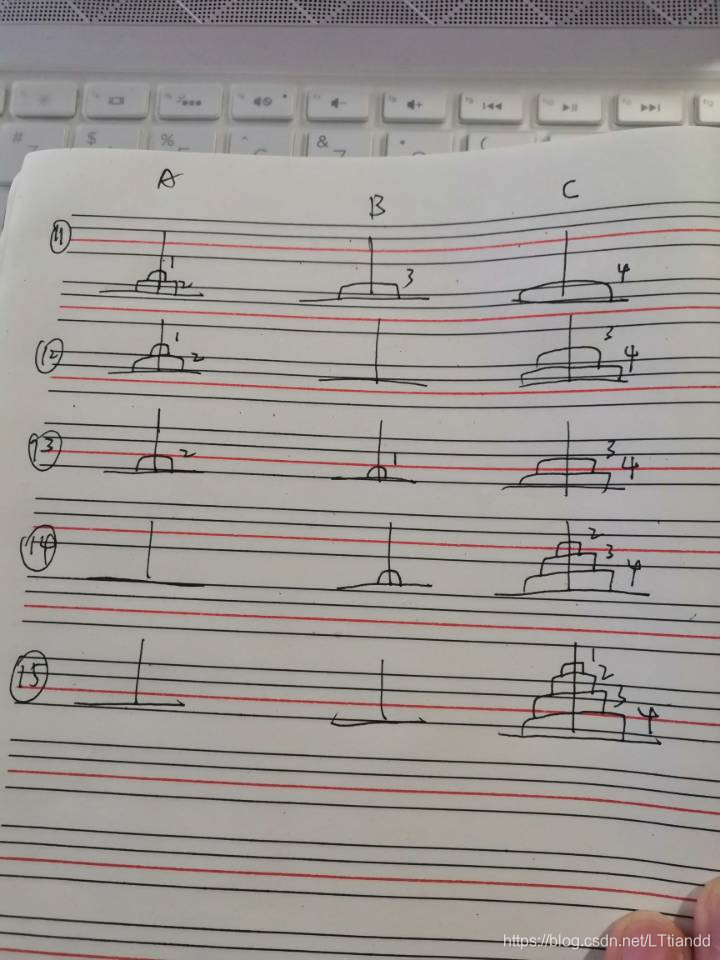 A B C
11 1 2 3 4
12 1 2 3 4
13 2 1 3 4
14 2 3 4
15 1 2 3 4
https://blog.csdn.net/LTtiandd